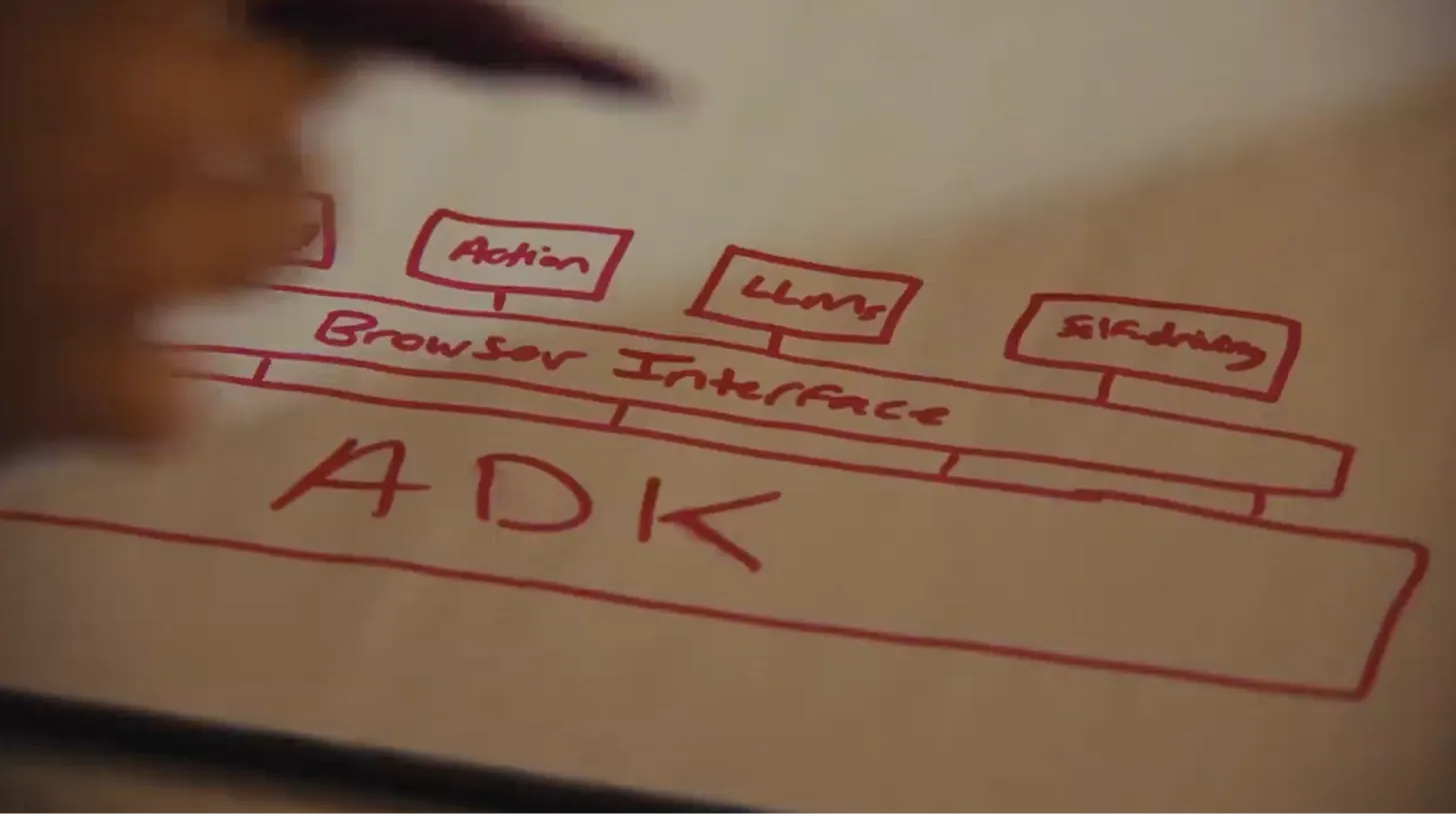 Action
LLMs
Self-driving
Browser Interface
ADK